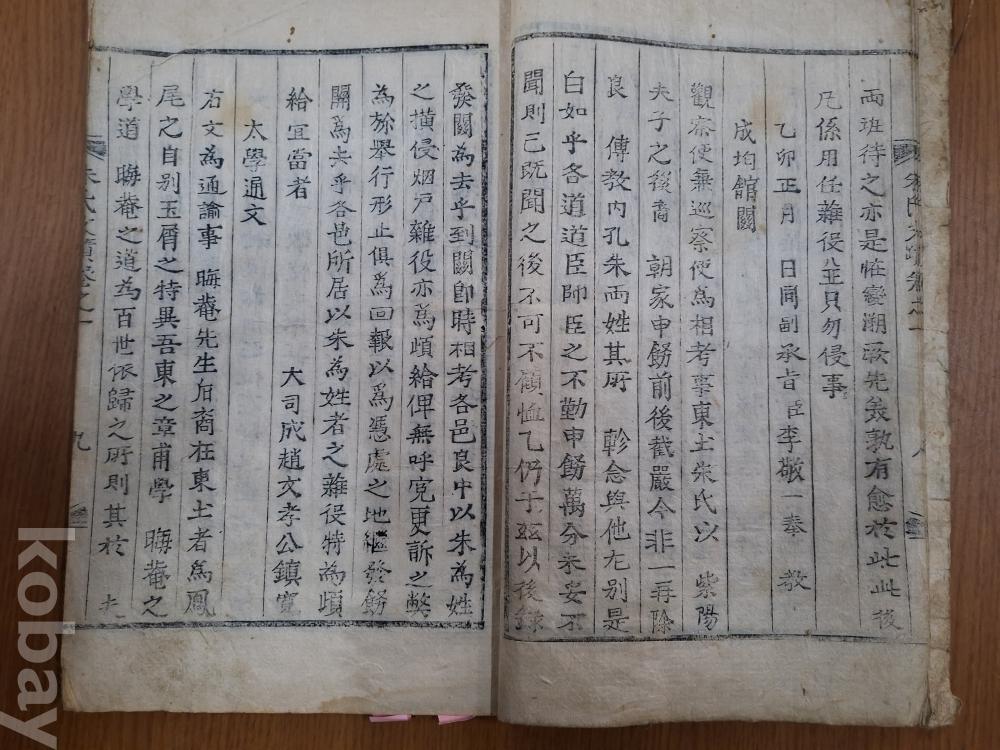 兩班待之亦是恠變溯汳先義孰有愈於此此後
凡係用任雜役㒰只勿侵事
乙卯正月 日同副承旨臣李敬一奉 敎
成均館關
觀察使兼巡察使爲相考事東土朱氏以 紫陽
夫子之後裔 朝家申飭前後截嚴今非一再除
良 傳敎內孔朱兩姓其所 軫念與他尤別是
白如乎各道道臣師臣之不勤申飭萬分未安不
聞則已旣聞之後不可不顧恤乙仍于玆以後錄
發關爲去乎到關卽時相考各邑良中以朱爲姓
之橫侵烟戶雜役亦爲頉給俾無呼寃更訴之弊
爲旀擧行形止俱爲回報以爲憑處之地繼發飭
關爲去乎各邑所居以朱爲姓者之雜役特爲頉
給宜當者
大司成趙文孝公鎭寬
太學通文
右文爲通諭事 晦菴先生后裔在東土者爲鳳
尾之自別玉屑之特異吾東之章甫學 晦菴之
學道 晦菴之道爲百世依歸之所則其於 夫
九
八
kobay